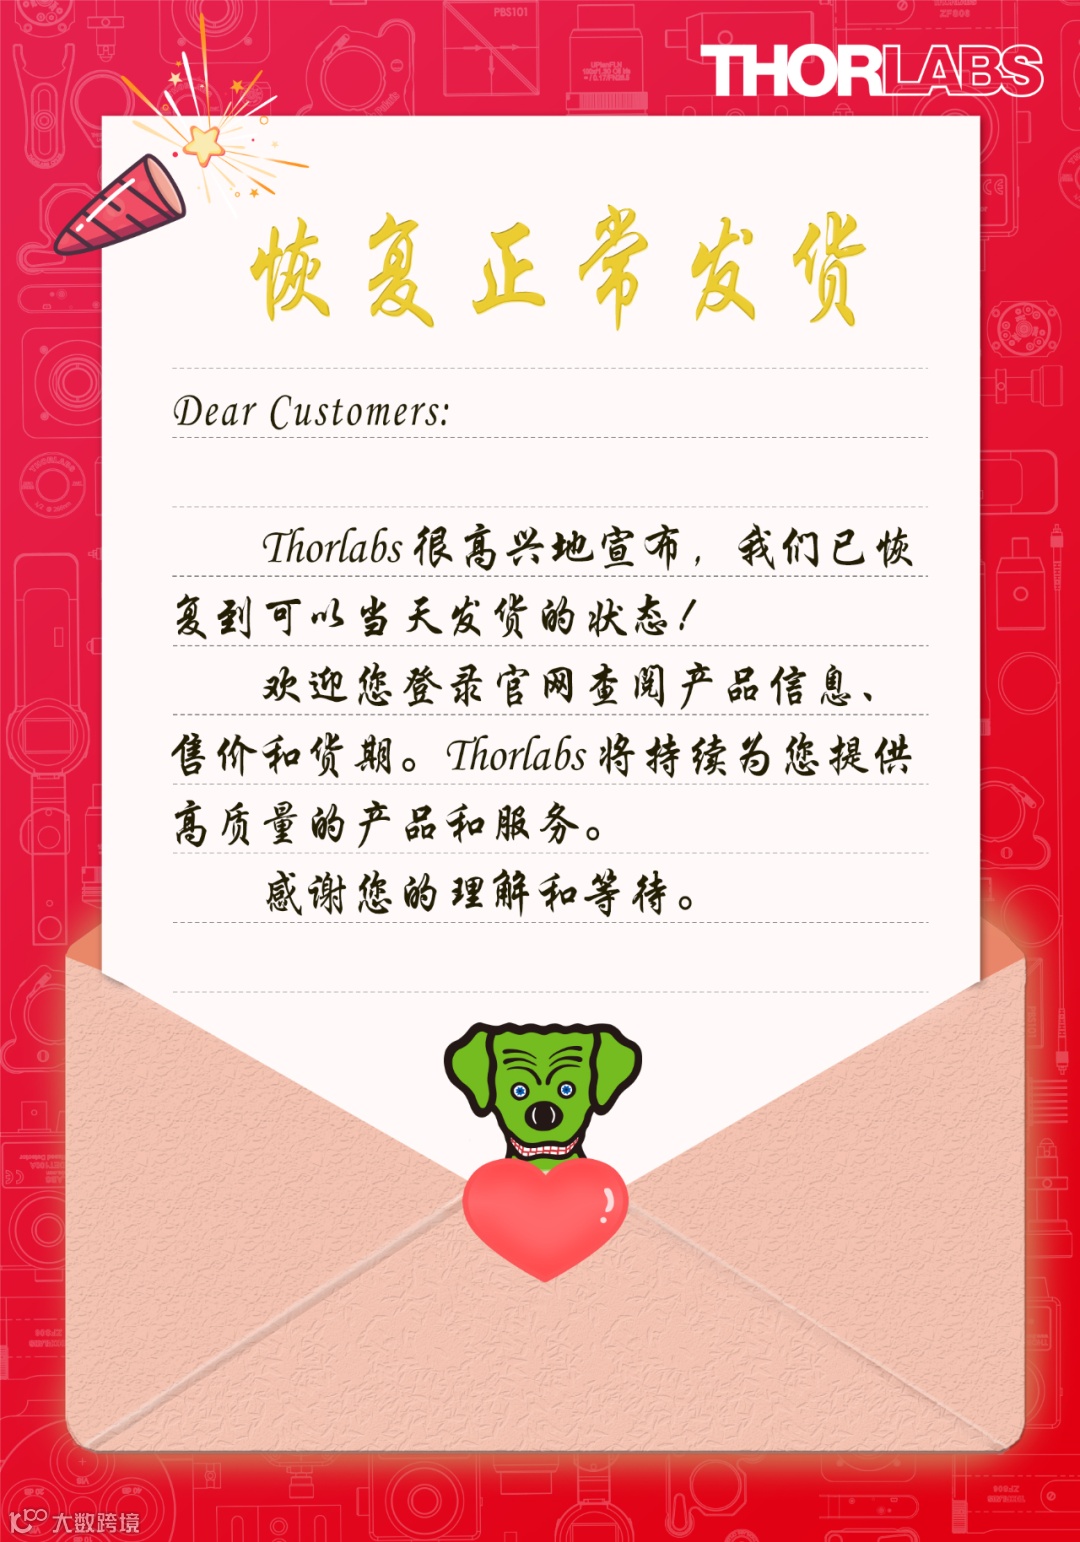 PBS101
THORLABS
恢复正常发货
Dear Customers:
Thorlabs 很高兴地宣布，我们已恢
复到可以当天发货的状态！
欢迎您登录官网查阅产品信息、
售价和货期。Thorlabs 将持续为您提供
高质量的产品和服务。
感谢您的理解和等待。
大数跨境